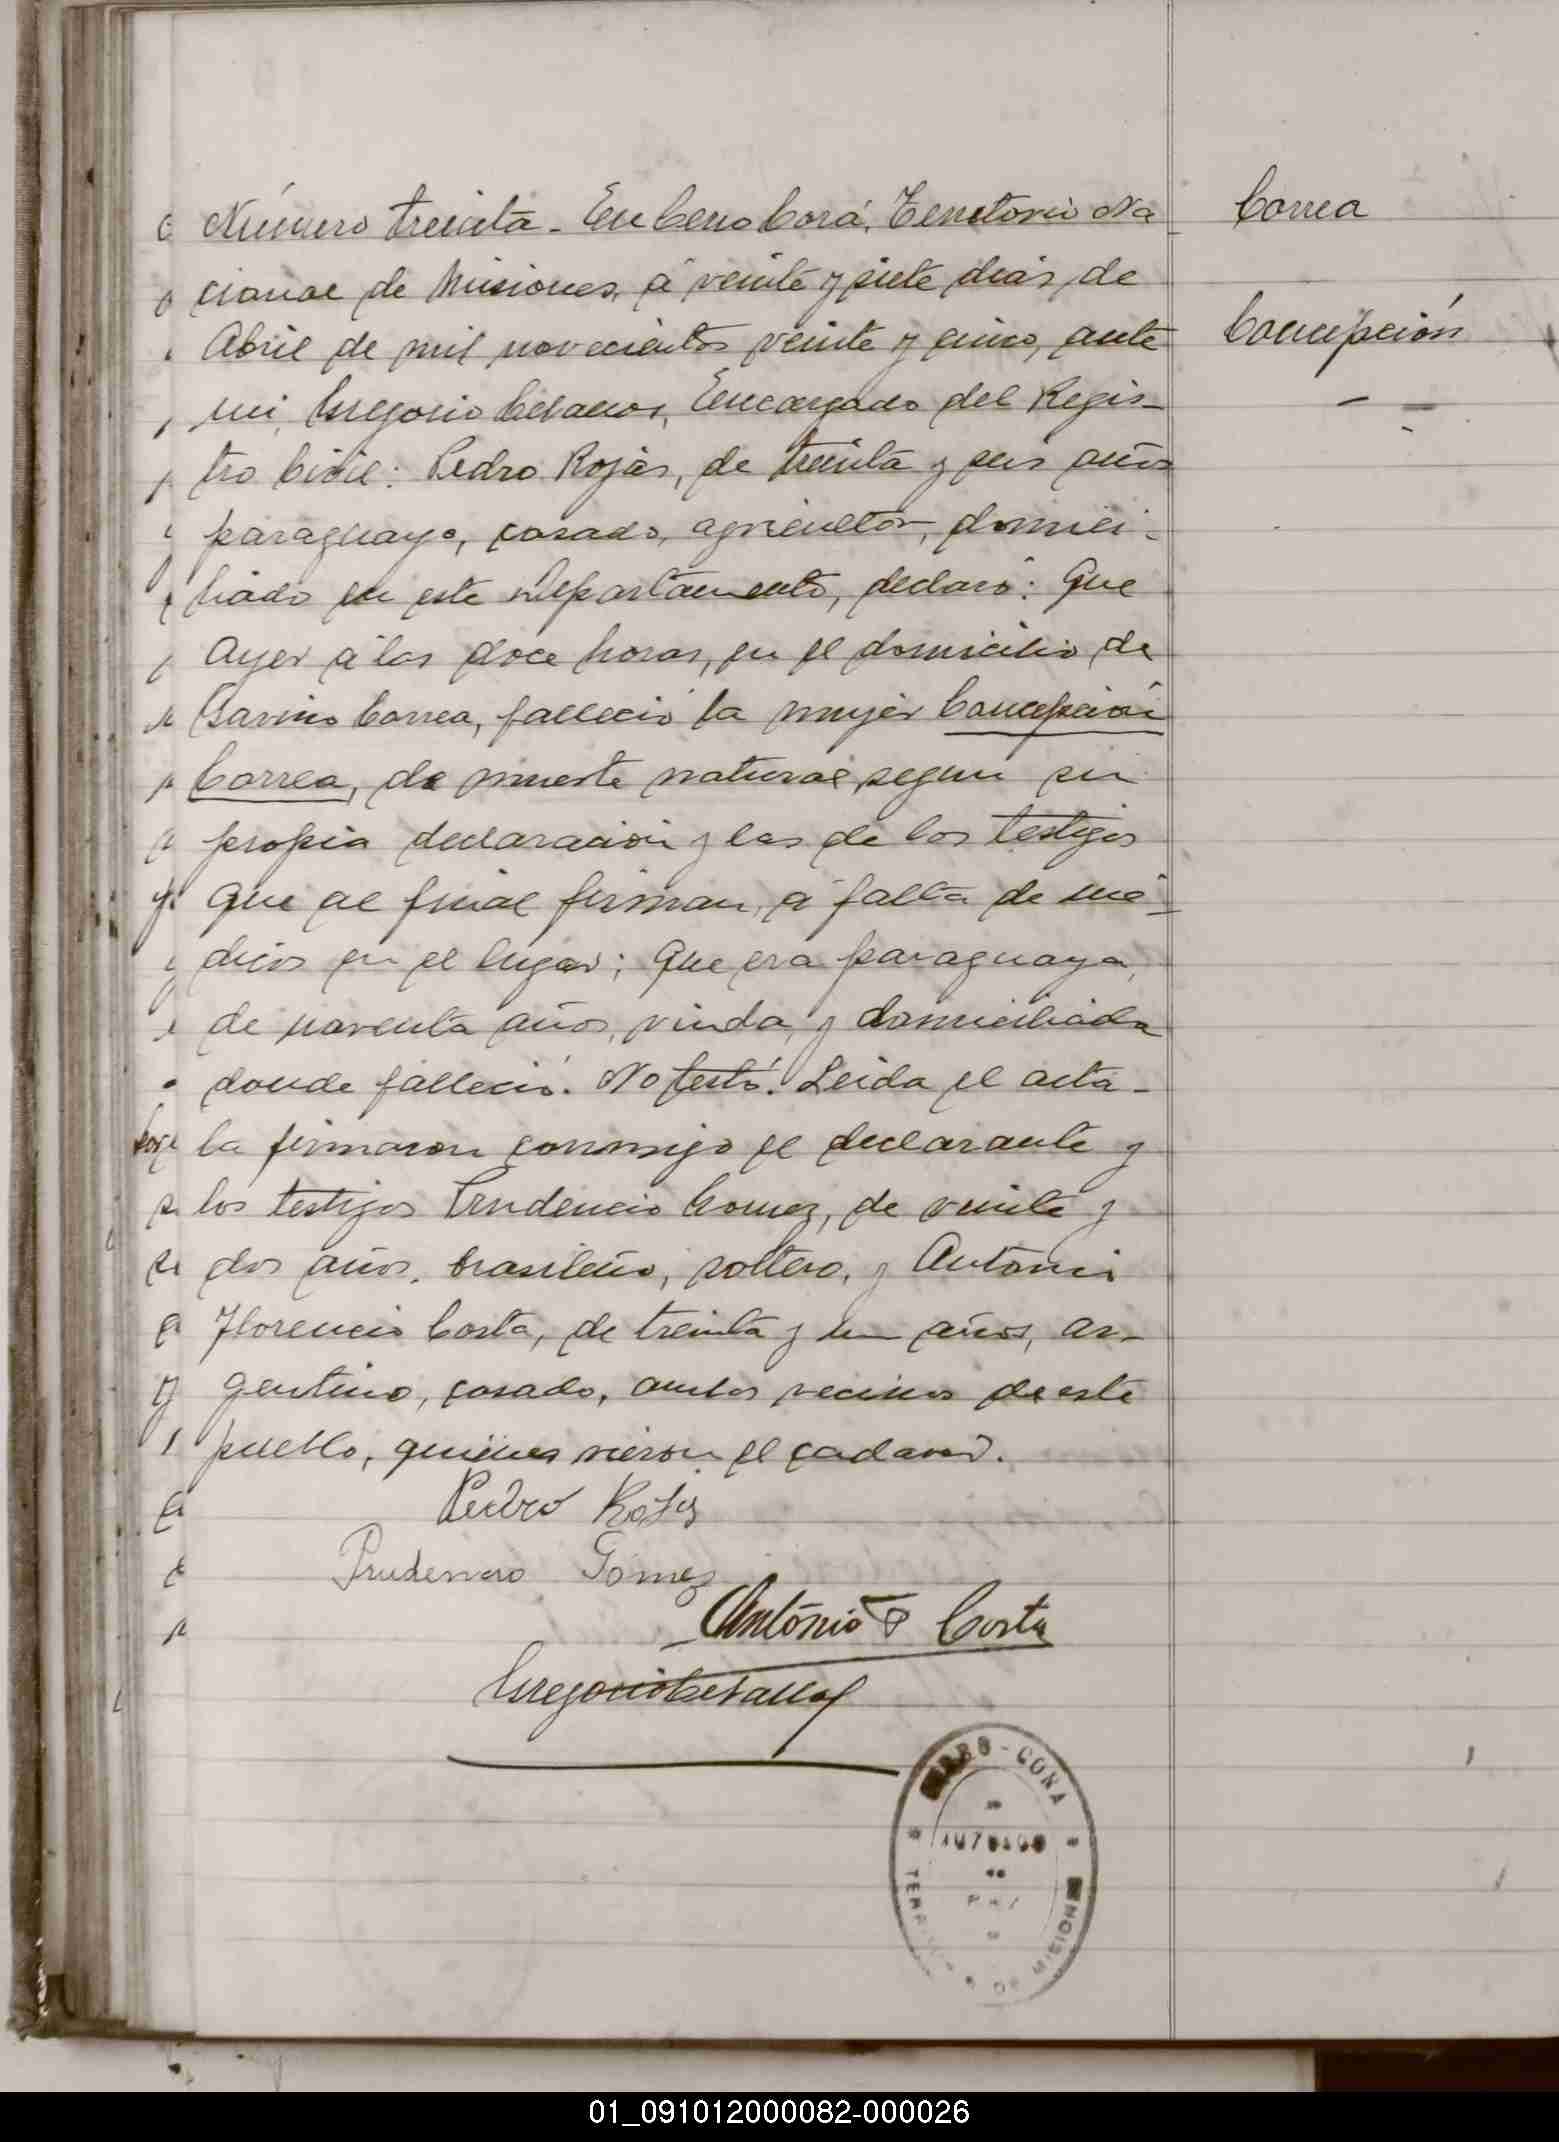 Número treinta - En Cerro Corá, Territorio Na
cional de Misiones, á veinte y siete dias de
Abril de mil novecientos veinte y cinco, ante
mi, Gregorio Cevallos, Encargado del Regis-
tro Civil: Pedro Rojas, de treinta y seis años
paraguayo, casado, agricultor, domici-
liado en este Departamento, declaró: Que
ayer á las doce horas, en el domicilio de
Gavino Correa, falleció la mujer Concepción
Correa, de muerte natural, segun su
propia declaracion y las de los testigos
que al final firman, á falta de mé-
dicos en el lugar; Que era paraguaya,
de noventa años, viuda, y domiciliada
donde falleció. No testó. Leida el acta-
la firmaron conmigo el declarante y
los testigos Prudencio Gomez, de veinte y
dos años, brasileño, soltero, y Antonio
Florencio Costa, de treinta y un años, ar-
gentino, casado, ambos vecinos de este
pueblo, quienes vieron el cadaver.
Pedro Rojas
Prudencio Gomez
António F Costa
Gregorio Cevallos
Correa
Concepción
MISIONES
01_091012000082-000026